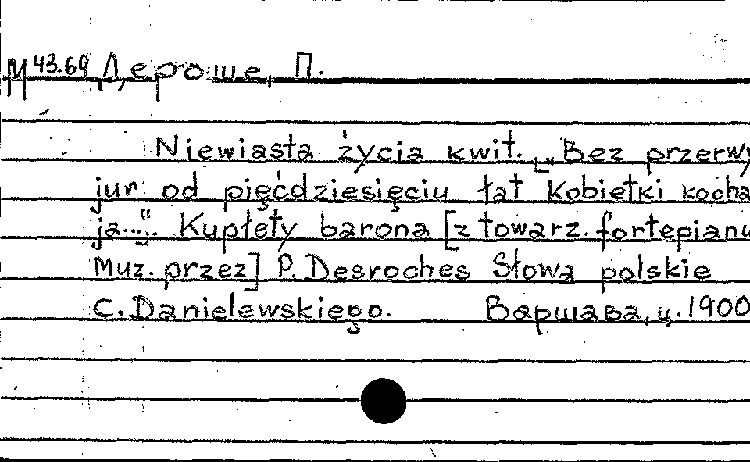 М 43.69 Дероше, П.
Niewiasta życia kwit. „Bez przerwy
jur od pięćdziesięciu łat Kobietki kocha
ja..." Kupłety barona [z towarz. fortepianu
Muz. przez] P. Desroches Słowa polskie
C. Danielewskiego. Варшава, ц. 1900